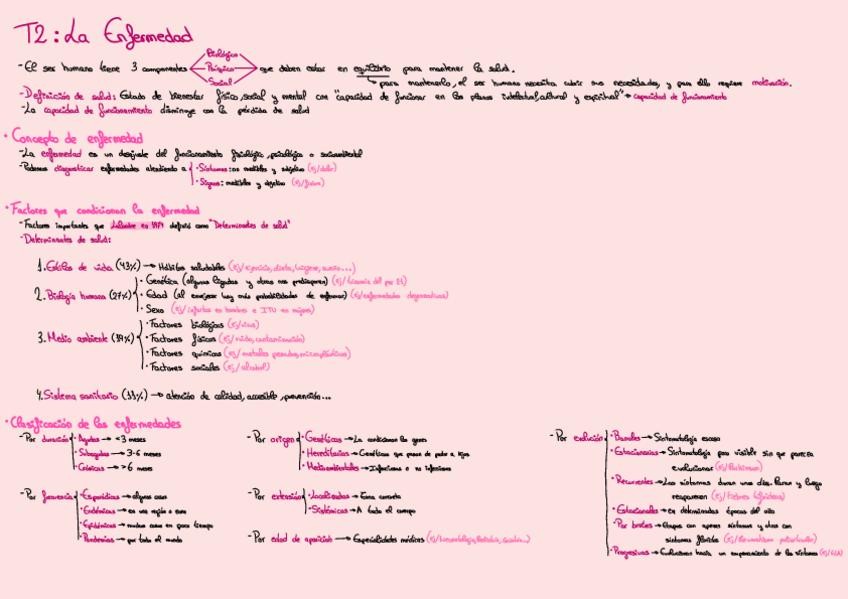 T2: La Enfermedad
Biológico
-El ser humano tiene 3 componentes Psíquico que deben estar en equilibrio para mantener la salud.
Social
para mantenerlo, el ser humano necesita cubrir sus necesidades, y para ello requiere motivación.
-Definición de salud: Estado de bienestar físico, social y mental con "capacidad de funcionar en los planos intelectual, cultural y espiritual" → capacidad de funcionamiento
-La capacidad de funcionamiento disminuye con la pérdida de salud
· Concepto de enfermedad
-La enfermedad es un desajuste del funcionamiento fisiológico, psicológico o socioambiental
-Podemos diagnosticar enfermedades atendiendo a · Síntomas: no medibles y subjetivo (Ej/dolor)
· Signos: medibles y objetivo (Ej/fiebre)
· Factores que condicionan la enfermedad
-Factores importantes que Lalonde en 1974 definió como "Determinantes de salud"
-Determinantes de salud:
1. Estilos de vida (43%) → Hábitos saludables (Ej/ejercicio, dieta, higiene, sueño...)
· Genética (algunas ligadas y otras nos predisponen) (Ej/trisomía del par 21)
2. Biología humana (27%) · Edad (al envejecer hay más probabilidades de enfermar) (Ej/enfermedades degenerativas)
· Sexo (Ej/infartos en hombres e ITU en mujeres)
· Factores biológicos (Ej/virus)
3. Medio ambiente (19%) · Factores físicos (Ej/ruido, contaminación)
· Factores químicos (Ej/metales pesados, microplásticos)
· Factores sociales (Ej/alcohol)
4. Sistema sanitario (11%) → atención de calidad, accesible, prevención...
· Clasificación de las enfermedades
-Por duración · Agudas → <3 meses
· Subagudas → 3-6 meses
· Crónicas → >6 meses
-Por frecuencia · Esporádicas → algunos casos
· Endémicas → en una región o zona
· Epidémicas → muchos casos en poco tiempo
· Pandemias → por todo el mundo
-Por origen · Genéticas → La condicionan los genes
· Hereditarias → Genéticas que pasan de padre a hijos
· Medioambientales → Infecciosas o no infecciosas
-Por extensión · Localizadas → Zona concreta
· Sistémicas → A todo el cuerpo
-Por edad de aparición → Especialidades médicas
-Por evolución · Banales → Sintomatología escasa
· Estacionarias → Sintomatología poco visible sin que parezca
evolucionar (Ej/Parkinson)
· Recurrentes → Los síntomas duran unos días. Paran y luego
reaparecen
· Estacionales → en determinadas épocas del año
· Por brotes → Etapas con apenas síntomas y otras con
síntomas floridos
· Progresivas → Evolucionan hacia un empeoramiento de los síntomas (Ej/ELA)